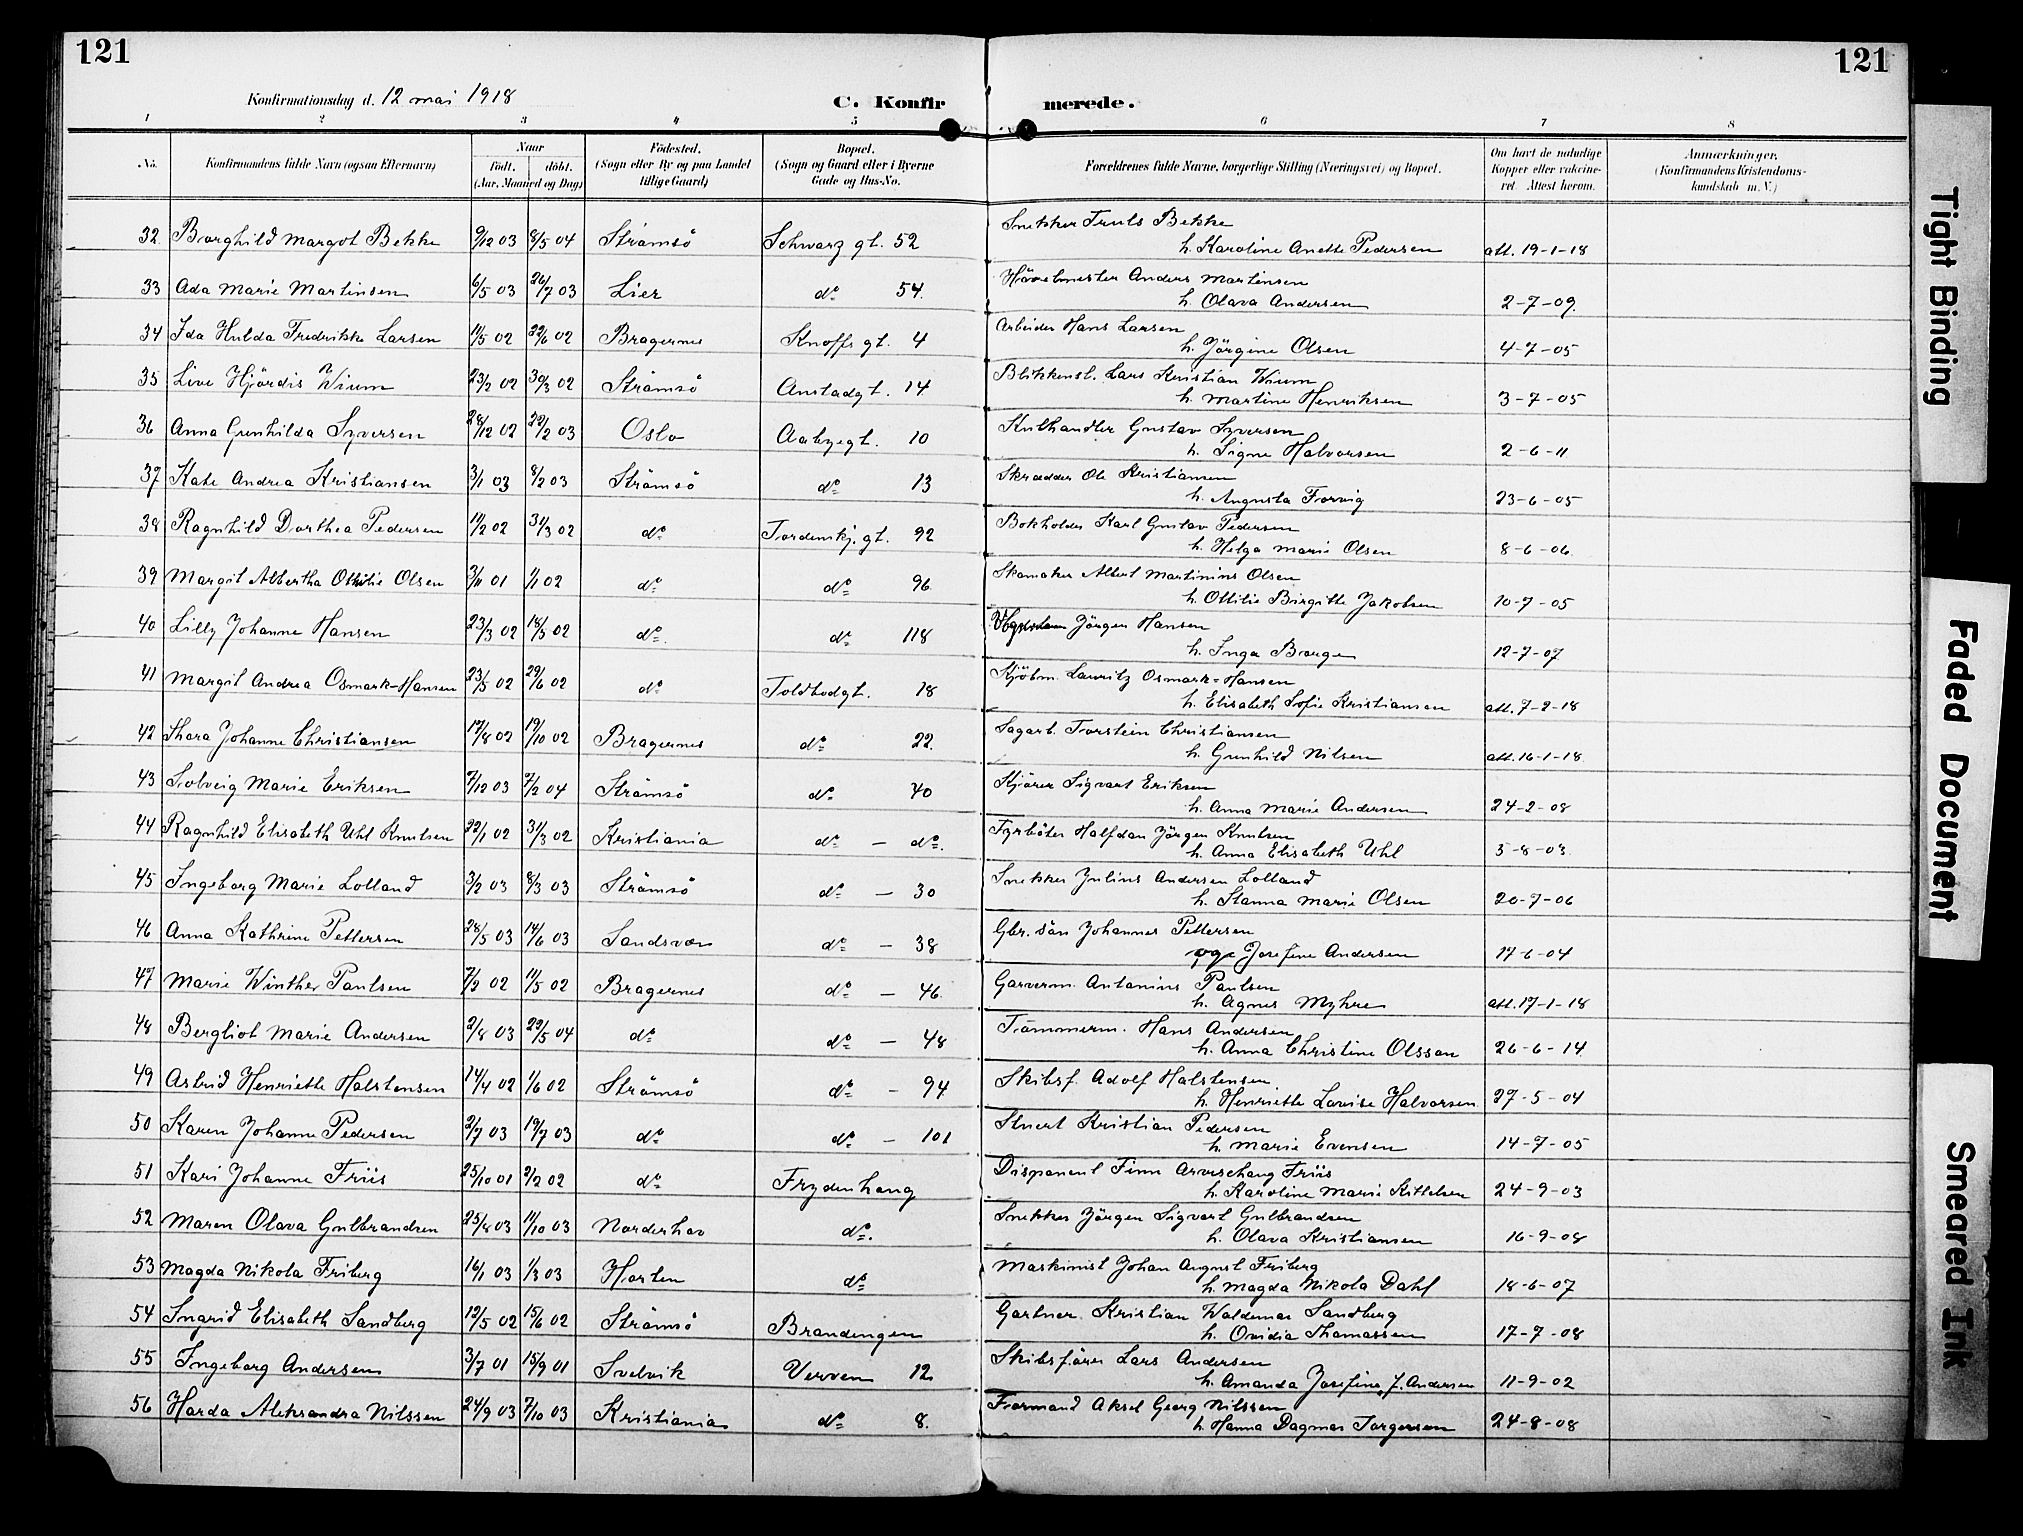 121
121
Konfirmationsdag d. 12 mai 1918
C. Konfir merede.
1 2 3 4 5 6 7 8
No. Konfirmandens fulde Navn (ogsaa Efternavn) Naar Født. døbt. (Aar, Maaned og Dag) Fødested. (Sogn eller By og paa Landet tillige Gaard) Bopæl. (Sogn og Gaard eller i Byerne Gade og Hus-No. Forældrenes fulde Navne, borgerlige Stilling (Næringsvei) og Bopæl. Om havt de naturlige Kopper eller vakcineret. Attest herom. Anmærkninger, (Konfirmandens Kristendomskundskab m. V.)
32 Borghild Margot Bekke 9/12 03 8/5 04 Strømsø Schwarz gt. 52 Snekker Truls Bekke
h. Karoline Anette Pedersen att. 19-1-18
33 Ada Marie Martinsen 6/5 03 26/7 03 Lier do 54 Anders Martinsen
h. Olava Andersen 2-7-09.
34 Ida Hulda Fredrikke Larsen 11/5 02 22/6 02 Bragernes Knoffs gt. 4 Arbeider Hans Larsen
h. Jörgine Olsen 4-7-05
35 Live Hjördis Wium 23/2 02 30/3 02 Strömsö Anstadgt. 14 Blikkensl. Lars Kristian Wium
h. Martine Henriksen 3-7-05
36 Anna Gunhilda Syversen 28/12 02 22/2 03 Oslo Aabygt. 10 Kulhandler Gustav Syversen
h. Signe Halvorsen 2-6-11
37 Kate Andrea Kristiansen 3/1 03 8/2 03 Strömsö do 13 Skrædder Ole Kristiansen
h. Augusta Forvig 23-6-05
38 Ragnhild Dorthea Pedersen 11/2 02 31/3 02 do Tordenskj. gt. 92 Bokholder Karl Gustav Pedersen
h. Helga Marie Olsen 8-6-06
39 Margit Albertha Ottilie Olsen 3/11 01 1/1 02 do do 96 Skomaker Albert Martinius Olsen
h. Ottilie Birgitte Jakobsen 10-7-05
40 Lilly Johanne Hansen 23/3 02 18/5 02 do do 118 Jörgen Hansen
h. Inga Borge 12-7-07
41 Margit Andrea Osmark-Hansen 23/5 02 29/6 02 do Toldbodgt. 18 Kjöbm. Lauritz Osmark-Hansen
h. Elisabeth Sofie Kristiansen att. 7-2-18
42 Thora Johanne Christiansen 17/8 02 19/10 02 Bragernes do 22 Sagarb. Torstein Christiansen
h. Gunhild Nilsen att. 16-1-18
43 Solveig Marie Eriksen 7/12 03 7/2 04 Strömsö do 40 Kjörer Sigvart Eriksen
h. Anna Marie Andersen 24-2-08
44 Ragnhild Elisabeth Uhl Knutsen 22/1 02 31/3 02 Kristiania do - do Fyrböter Halfdan Jörgen Knutsen
h. Anna Elisabeth Uhl 5-8-03
45 Ingeborg Marie Lolland 3/2 03 8/3 03 Strömsö do - 30 Snekker Julius Andersen Lolland
h. Hanna Marie Olsen 20-7-06
46 Anna Kathrine Pettersen 28/5 03 14/6 03 Sandsvær do - 38 Gbr. sön Johannes Pettersen
pge Josefine Andersen 17-6-04
47 Marie Winther Paulsen 7/3 02 11/5 02 Bragernes do - 46 Garverm. Antonius Paulsen
h. Agnes Myhre att. 17-1-18
48 Bergliot Marie Andersen 2/8 03 29/5 04 do do - 48 Tömmerm. Hans Andersen
h. Anna Christine Olsson 26-6-14
49 Astrid Henriette Halstensen 14/4 02 1/6 02 Strömsö do - 94 Skibsf. Adolf Halstensen
h. Henriette Lovise Halvorsen 27-5-04
50 Karen Johanne Pedersen 2/7 03 19/7 03 do do - 101 Stuert Kristian Pedersen
h. Marie Evensen 14-7-05
51 Kari Johanne Friis 25/10 01 2/2 02 do Frydenhaug Disponent Finn Friis
h. Karoline Marie Kittelsen 24-9-03
52 Maren Olava Gulbrandsen 25/8 03 11/10 03 Norderhov do Snekker Jörgen Sigvart Gulbrandsen
h. Olava Kristiansen 16-9-08
53 Magda Nikola Friberg 16/1 03 1/3 03 Horten do Maskinist Johan August Friberg
h. Magda Nikola Dahl 18-6-07
54 Ingrid Elisabeth Sandberg 12/5 02 15/6 02 Strömsö Brandengen Gartner Kristian Waldemar Sandberg
h. Ovidia Thomassen 17-7-08
55 Ingeborg Andersen 3/7 01 15/9 01 Svelvik Verven 12 Skibsförer Lars Andersen
h. Amanda Josefine f. Andersen 11-9-02
56 Harda Aleksandra Nilssen 24/9 03 7/10 03 Kristiania do 8. Formand Aksel Georg Nilssen
h. Hanna Dagmar Torgersen 24-8-08
Tight Binding
Faded Document
Smeared Ink